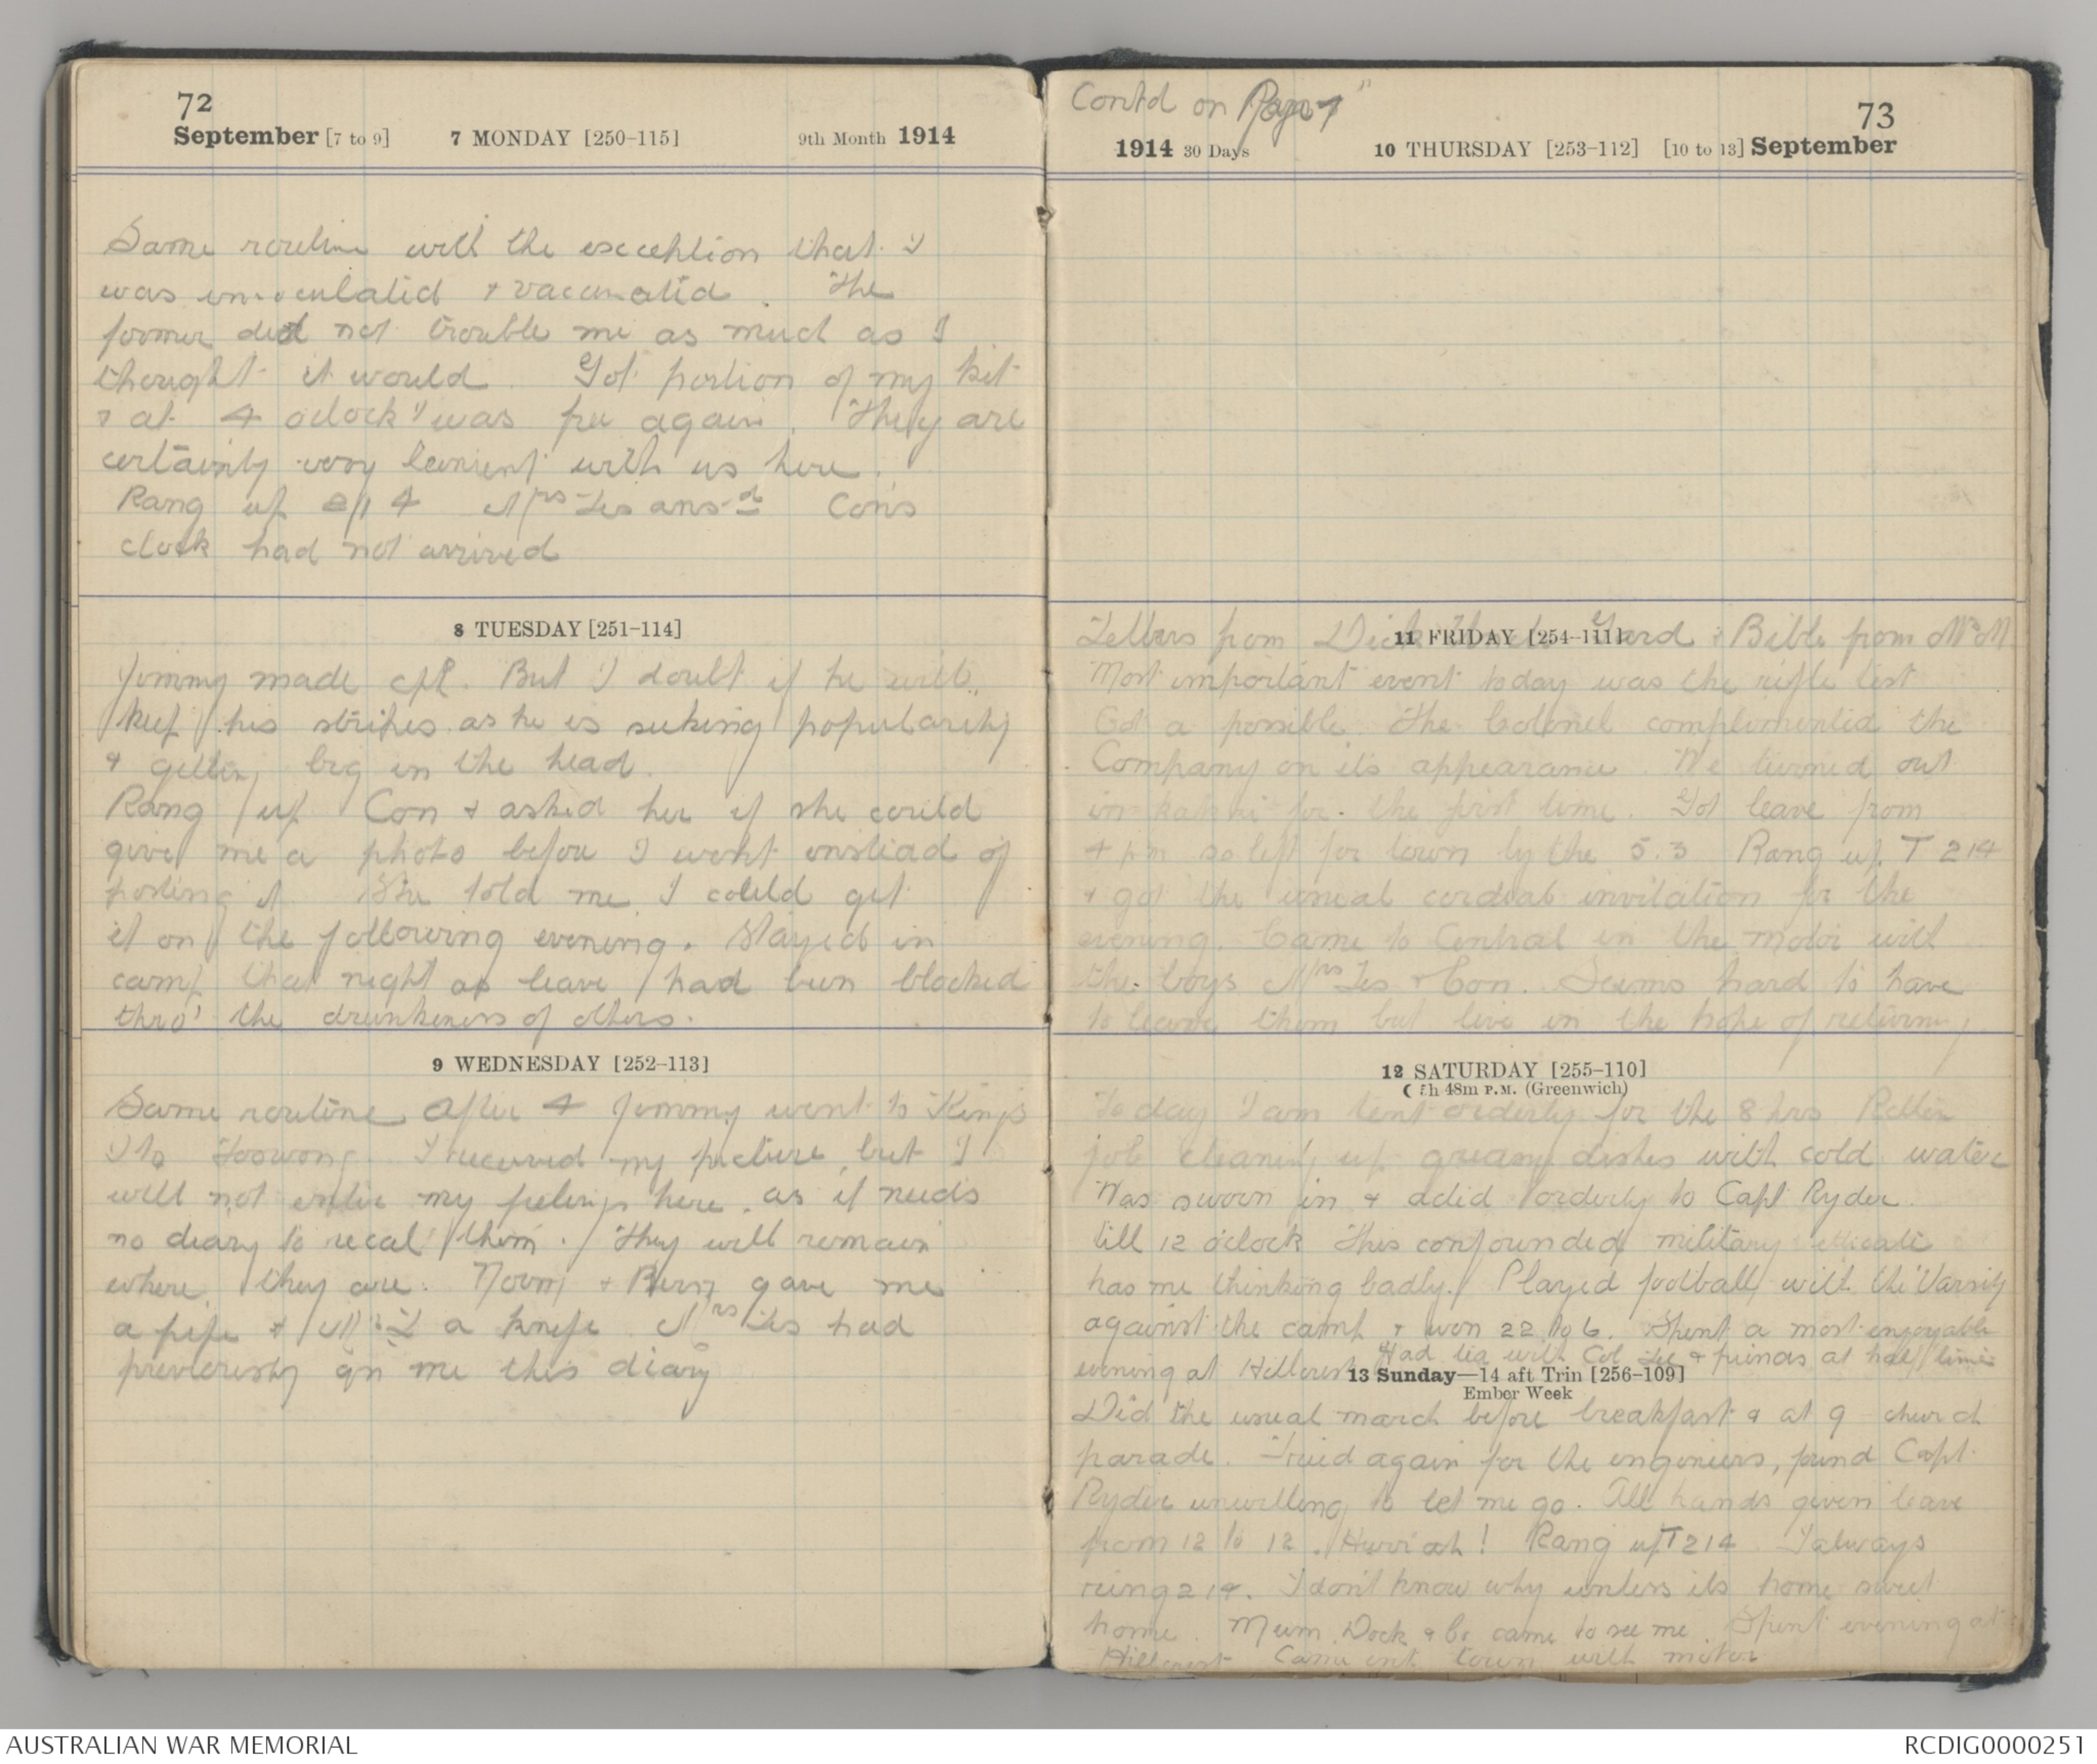 72
September [7 to 9] 7 MONDAY [250-115] 9th Month 1914
Same routine with the exception that I
was innoculated & vaccinated. The
former did not trouble me as much as I
thought it would. Got portion of my kit
& at 4 oclock I was free again. They are
certainly very leenient with us here.
Rang up 214 Mrs Les ansd Con's
clock had not arrived
8 TUESDAY [251-114]
Jimmy made cpl. But I doubt if he will
keep his stripes as he is seeking popularity
& getting big in the head.
Rang up Con & asked her if she could
give me a photo before I went instead of
posting it She told me I could get
it on the following evening. Stayed in
camp that night as leave had been blocked
thro' the drunkeness of others.
9 WEDNESDAY [252-113]
Same routine after 4 Jimmy went to Kings
I to Toowong. I received my picture, but I
will not enter my feelings here, as it needs
no diary to recal them. They will remain
where they are. Norm & gave me
a pipe & a knife. Mrs Les had
previously gn me this diary
Contd on Page
73
1914 30 Days 10 THURSDAY [253-112] [10 to 13] September
11 FRIDAY [254-111]
Letters from Dick & Bible from
Most important event today was the rifle test
Got a possible. The Colonel complemented the
Company on its appearance. We turned out
in kahki for the first time. Got leave from
4 pm so left for town by the 5.3 Rang up T 214
& got the usual cordial invitation for the
evening. Came to Central in the motor with
the boys Mrs Les & Con. Seems hard to have
to leave them but live in the hope of returning
12 SATURDAY [255-110]
☾ 5h 48m P.M. (Greenwich)
Today I am tent orderly for the 8 hrs. Rotten
job cleaning up greasy dishes with cold water
Was sworn in & acted orderly to Capt Ryder.
till 12 oclock This confounded military
has me thinking badly. Played football with the Varsity
against the camp & won 22 to 6. Spent a most enjoyable
evening at Hillcrest Had tea with Col & friends at half time
13 Sunday—14 aft Trin [256-109]
Ember Week
Did the usual march before breakfast & at 9 church
parade. Tried again for the engineers, found Capt
Ryder unwilling to let me go. All hands given leave
from 12 to 12. Hurrah! Rang up T214 I always
ring 214. I don't know why unless its home sweet
home. Mum. Dock & came to see me. Spent evening at
Hillcrest Came int town with motor
AUSTRALIAN WAR MEMORIAL RCDIG0000251